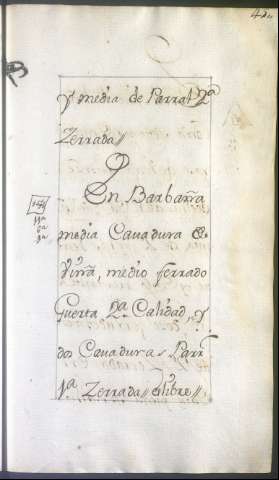 y media de Parral 2ª
Zerrada//
En Barbaña
media Cavadura de
Viña, medio ferrado
Guerta 2ª Calidad, y
dos Cavaduras Parrˡ
1ª Zerrada//libre//